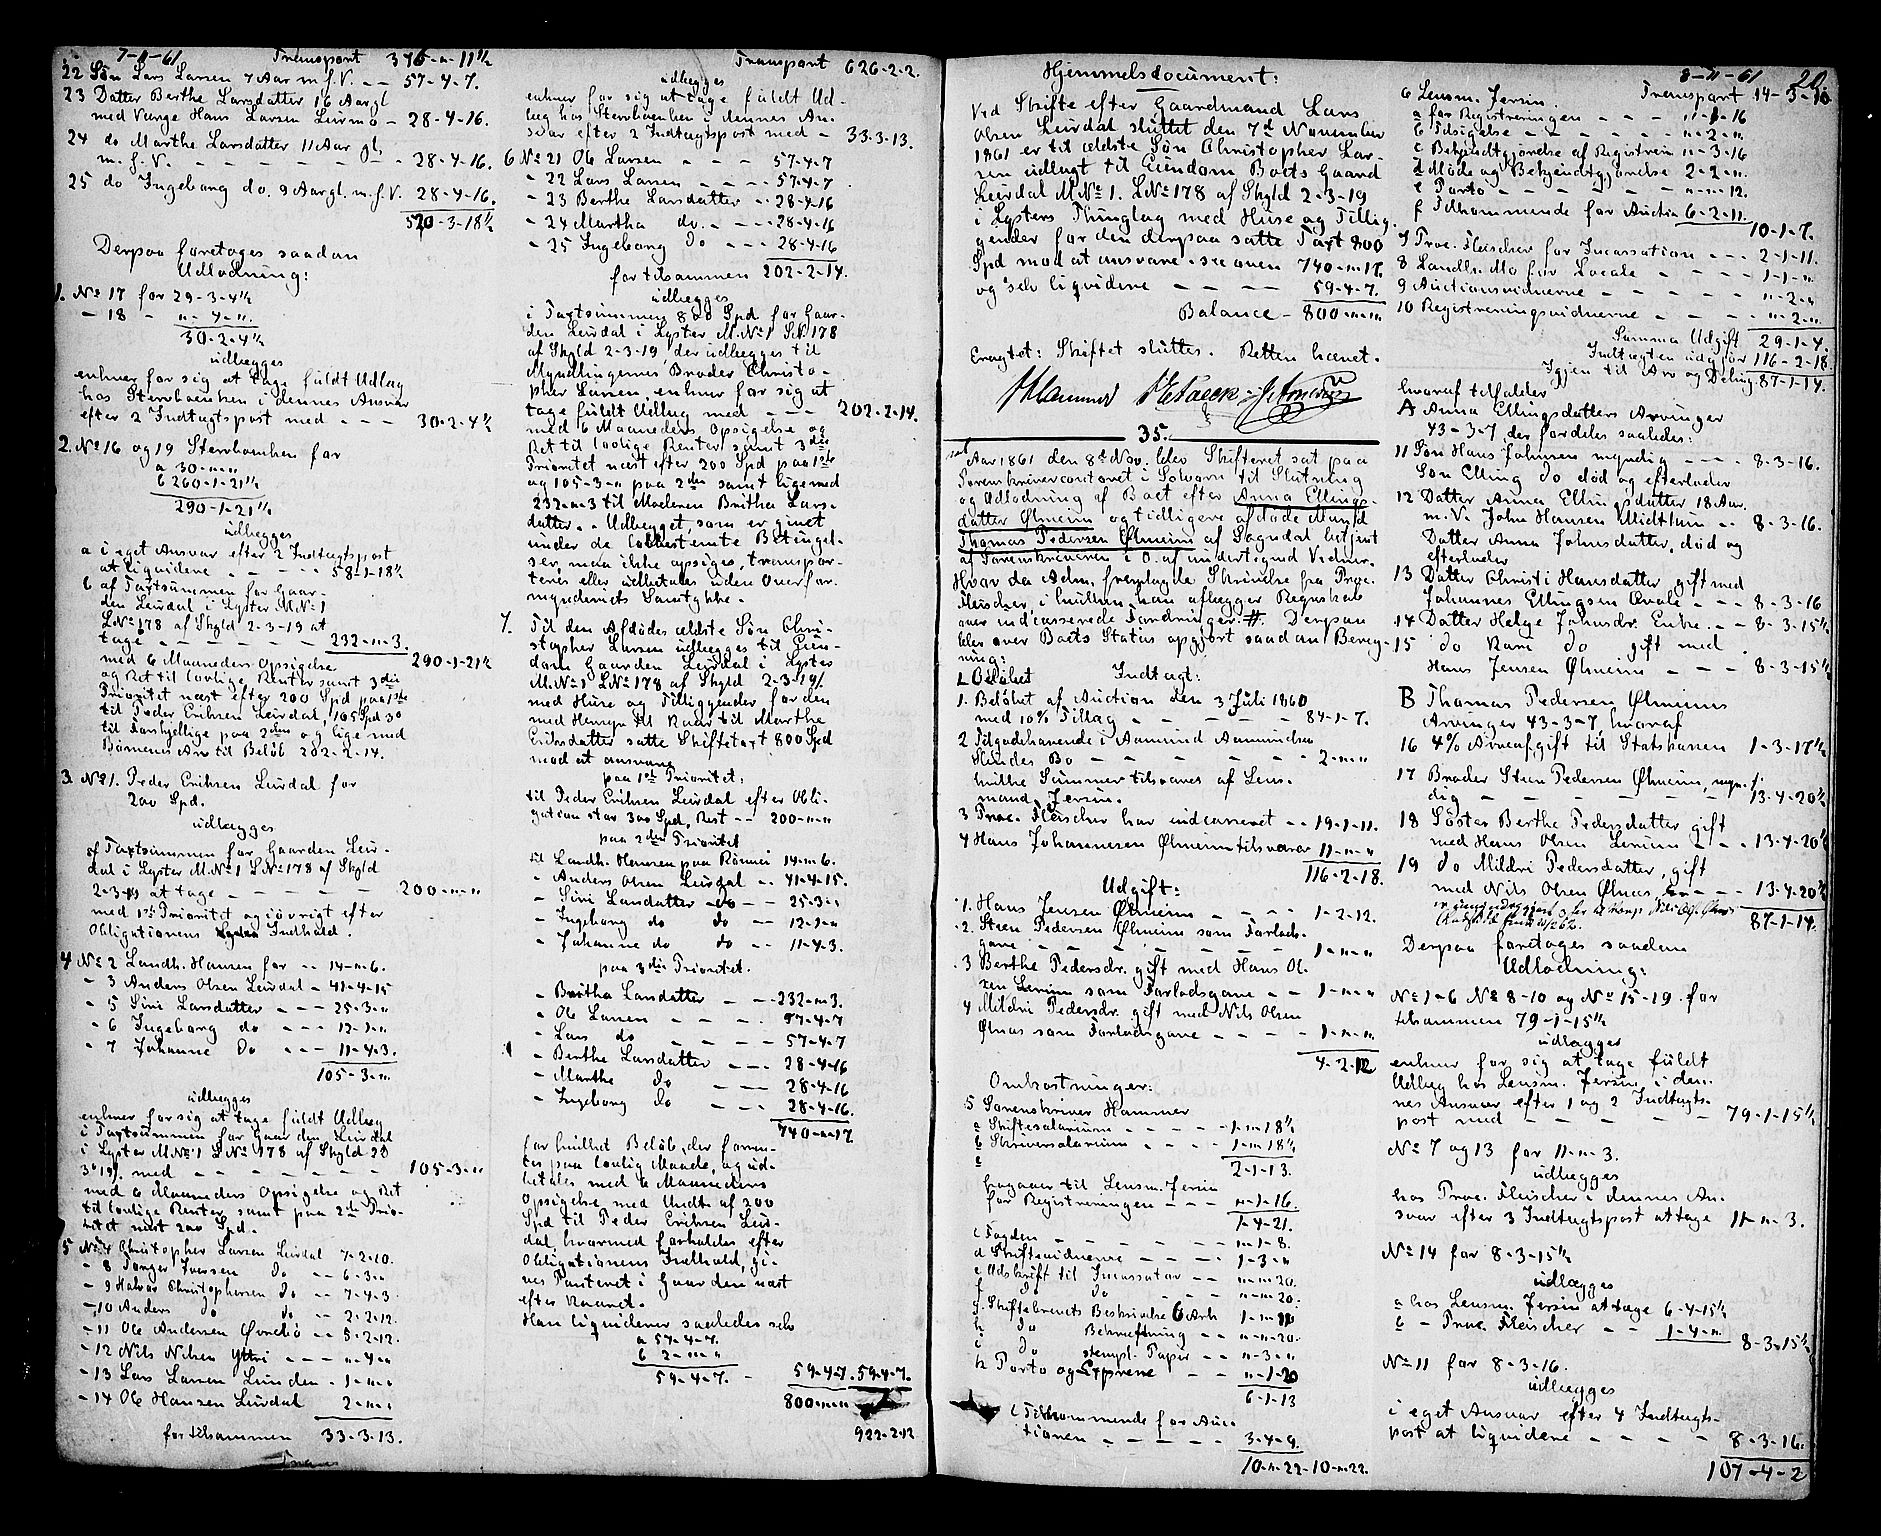 7-11-61 Transport 376-"-11½
22 Søn Lars Larsen 7 Aar m.f.V. - - 57-4-7.
23 Datter Berthe Larsdatter 16 Aar gl
med Verge Hans Larsen Leirmo - 28-4-16.
24 do Marthe Larsdatter 11 Aar gl.
m.f.V. - - - - - 28-4-16.
25 do Ingeborg do. 9 Aar gl. m.f.V. 28-4-16.
520-3-18½
Derpaa foretages saadan
Udlodning:
1. No 17 for 29-3-4½
- 18 - "-4-".
30-2-4½
udlægges
enhver for sig at tage fuldt Udlæg
hos Sterrboenken i dennes Ansvar
efter 2 Indtægtspost med - - - 30-2-4½
2. No 16 og 19 Sterrboenken for
a 30-"-"
b 260-1-21½
290-1-21½
udlægges
a i eget Ansvar efter 2 Indtægtspost
at liqvidere - - - - 58-1-18½
b af Taxtsummen for Gaar-
den Leirdal i Lyster M.No 1
LNo 178 af Skyld 2-3-19 at
tage - - - - - 232-"-3.
med 6 Maaneders Opsigelse 290-1-21½
og Ret til lovlige Renter samt 3die
Prioritet næst efter 200 Spd paa 1ste
til Peder Eriksen Leirdal, 105 Spd 3o
til Forskjellige paa 2den og lige med
Børnenes Arv til Beløb 202-2-14.
3. No 1. Peder Eriksen Leirdal for
200 Spd.
udlægges
af Taxtsummen for Gaarden Leir-
dal i Lyster M.No 1 LNo 178 af Skyld
2-3-19 at tage - - - - - 200-"-"
med 1ste Prioritet og iøvrigt efter
Obligationens Indhold.
4 No 2 Landh. Hansen for - - 14-"-6.
- 3 Anders Olsen Leirdal - 41-4-15
- 5 Siri Larsdatter - - - 25-3-"
- 6 Ingeborg do - - - 12-1-"
- 7 Johanne do - - - 11-4-3.
105-3-".
udlægges
enhver for sig at tage fuldt Udlæg
i Taxtsummen for Gaarden Leirdal
i Lyster M.No 1 LNo 178 af Skyld 2D
3o 19s. med - - - - - 105-3-"
med 6 Maaneders Opsigelse og Ret
til lovlige Renter samt paa 2den Prio-
ritet næst 200 Spd.
5 No 4 Christopher Larsen Leirdal 7-2-10.
- 8 Torger Iversen do - - 6-3-"
- 9 Halvor Christophersen do - - 7-4-3
- 10 Anders do do - - 2-2-12.
- 11 Ole Andersen Øvrebø - - 5-2-12.
- 12 Nils Nilsen Yttri - - - "-4-"
- 13 Lars Larsen Leirdal - 1-"-"
- 14 Ole Hansen Leirdal 2-"-"
for tilsammen 33-3-13.
Trans
Transport 626-2-2.
udlægges
enhver for sig at tage fuldt Ud-
læg hos Sterrboenken i dennes An-
svar efter 2 Indtægtspost med - 33-3-13.
6 No 21 Ole Larsen - - - 57-4-7
- 22 Lars Larsen - - - 57-4-7
- 23 Berthe Larsdatter - - 28-4-16
- 24 Martha do. - - - 28-4-16
- 25 Ingeborg do - - - 28-4-16
for tilsammen 202-2-14.
udlægges
i Taxtsummen 800 Spd for Gaar-
den Leirdal i Lyster M.No 1 LNo 178
af Skyld 2-3-19 der udlægges til
Myndlingernes Broder Christo-
pher Larsen, enhver for sig at
tage fuldt Udlæg med - - - 202-2-14.
med 6 Maaneders Opsigelse og
Ret til lovlige Renter samt 3die
Prioritet næst efter 200 Spd paa 1ste
og 105-3-" paa 2den samt lige med
232-"-3 til Moderen Brittha Lars-
datter. - Udlægget, som er givet
under de bestemte Betingel-
ser, maa ikke opsiges, transpor-
teres eller udbetales uden Overfor-
mynderiets Samtykke. -
7. Til den Afdødes ældste Søn Chri-
stopher Larsen udlægges til Eien-
dom Gaarden Leirdal i Lyster
M.No 1 LNo 178 af Skyld 2-3-19/
med Huse og Tilliggender for den
med Hensyn til Kaar til Marthe
Eriksdatter satte Skiftetaxt 800 Spd
mod at ansvare
paa 1ste Prioritet:
til Peder Eriksen Leirdal efter Obli-
gation stor 300 Spd, Rest - - 200-"-"
paa 2den Prioritet
til Landh. Hansen paa Rønnei 14-"-6.
- Anders Olsen Leirdal - - 41-4-15.
- Siri Larsdatter do - - 25-3-"
- Ingeborg do do - - 12-1-"
- Johanne do do - - 11-4-3.
paa 3die Prioritet.
- Brittha Larsdatter - - - 232-"-3.
- Ole Larsen - - - - 57-4-7
- Lars do - - - - - 57-4-7
- Berthe Larsdatter - - - 28-4-16
- Marthe do - - - 28-4-16
- Ingeborg do - - - 28-4-16.
740-"-17.
for hvilket Beløb, der forren-
tes paa lovlig Maade, og ud-
betales med 6 Maaneders
Opsigelse med Undt. af 200
Spd til Peder Eriksen Leir-
dal hvormed forholdes efter
Obligationens Indhold, gi-
ves Panteret i Gaarden næst
efter Kaaret.
Han liqviderer saaledes selv
a 57-4-7.
b 2-"-"
59-4-7. - 59-4-7. 59-4-7.
800-"-"
922-2-12
Hjemmelsdocument:
Ved Skifte efter Gaardmand Lars
Olsen Leirdal sluttet den 7de November
1861 er til ældste Søn Christopher Lar-
sen udlagt til Eiendom Boets Gaard
Leirdal M.No 1. LNo 178 af Skyld 2-3-19
i Lysters Thinglag med Huse og Tillig-
gender for den derpaa satte Taxt 800
Spd mod at ansvare - see oven 740-"-17.
og selv liqvidere - - - - 59-4-7.
Balance - 800-"-"
Eragtet: Skiftet sluttes. Retten hævet.
35.
Aar 1861 den 8de Nov. blev Skifteret sat paa
Sorenskrivercontoret i Solvorn til Slutning
og Udlodning af Boet efter Anna Ellings-
datter Ølmeim og tidligere afdøde Mand
Thomas Pedersen Ølmeim af Sogndal betjent
af Sorenskriveren i O. af undertegnet Vidner.
Hvor da Adm. fremlagde Skrivelse fra Proc.
Fleischer, i hvilken han aflægger Regnskab
over indcasserede Fordringer. #. Derpaa
blev over Boets Status opgjort saadan Bereg-
ning:
Indtægt:
1. Beløbet af Auction den 3 Juli 1860
med 10% Tillæg - - - - - 84-1-7.
2 Tilgodehavende i Aamund Aamundsen
Bo - - - - - - 2-"-"
hvilke Summer tilsvares af Lens-
mand Jersin.
3 Proc. Fleischer har indcasseret - - 19-1-11.
4 Hans Johannesen Ølmeim tilsvarer 11-"-"
116-2-18.
Udgift:
1. Hans Jensen Ølmeim - - - - 1-2-12.
2. Steen Pedersen Ølmeim som Forlods-
gave - - - - - - - - 1-"-"
3 Berthe Pedersdr. gift med Hans Ol-
sen Lerum som Forlodsgave - - 1-"-"
4 Mildri Pedersdr. gift med Nils Olsen
Ølnæs som Forlodsgave - - - 1-"-"
4-2-12
Omkostninger:
5 Sorenskriver Hammer
a Skiftesalarium - - - - - 1-"-18½
b Skriversalarium - - - - 1-"-18½
2-1-13.
hvoraf til Lensm. Jersin
for Registreringen - - - "-1-16.
1-4-21.
c Fogden - - - - - "-1-8.
d Skiftevidnerne - - - 1-3-"
e Udskrift til Incassator - - "-"-20.
f do do - - "-"-20.
g Skiftebrevets Beskrivelse 6 Ark
h do Bekræftning - - "-"-20.
i do stempl. Papir - - "-3-"
k Porto og Exprene - - "-1-20
6-1-13
l Tilkommende for Auc-
tionen - - - - - 3-4-9.
10-"-22-10-"-22.
8-11-61 20.
6 Lensm. Jersin. Transport 14-3-10
a for Registreringen - - - "-1-16
b Tilsigelse - - - - - "-2-"
c Bekjendtgjørelse af Registrering "-3-16
d Møde og Bekjendtgjørelse 2-2-"
e Porto - - - - - - "-"-12.
f Tilkommende for Auction 6-2-11.
10-1-7.
7 Proc. Fleischer for Incassation - - - 2-1-11.
8 Landh. Mo for Locale - - - - 1-1-"
9 Auctionsvidnerne - - - - - "-2-"
10 Registreringsvidnerne - - - - "-2-"
Summa Udgift 29-1-4.
Indtægten udgjør 116-2-18
Igjen til Arv og Deling 87-1-14.
hvoraf tilfalder
A Anna Ellingsdatters Arvinger
43-3-7 der fordeles saaledes:
11 Søn Hans Johnsen myndig - - - 8-3-16.
Søn Elling do død og efterlader
12 Datter Anna Ellingsdatter 18 Aar.
m.V. John Hansen Midthun - - 8-3-16.
Datter Anna Johnsdatter, død og
efterlader
13 Datter Christi Hansdatter gift med
Johannes Ellingsen Qvale - - - 8-3-16
14 Datter Helge Johnsdr. Enke. - - 8-3-15½
15 do Kari do gift med
Hans Jensen Ølmeim - - - 8-3-15½
B Thomas Pedersen Ølmeims
Arvinger 43-3-7 hvoraf
16 4% Arveafgift til Statskassen 1-3-17½
17 Broder Steen Pedersen Ølmeim, myn-
dig - - - - - - - 13-4-20½
18 Søster Berthe Pedersdatter gift
med Hans Olsen Lerum - - 13-4-20½
19 do Mildri Pedersdatter, gift
med Nils Olsen Ølnæs - - - 13-4-20½
87-1-14.
Derpaa foretages saadan
Udlodning:
No 1-6 No 8-10 og No 15-19 for
tilsammen 79-1-15½
udlægges
enhver for sig at tage fuldt
Udlæg hos Lensm. Jersin i den-
nes Ansvar efter 1 og 2 Indtægts-
post med - - - - - 79-1-15½
No 7 og 13 for 11-"-3.
udlægges
hos Proc. Fleischer i dennes An-
svar efter 3 Indtægtspost at tage 11-"-3.
No 14 for 8-3-15½
udlægges
a hos Lensm. Jersin at tage 6-4-15½
b - Proc. Fleischer - - 1-4-"
8-3-15½
No 11 for 8-3-16.
udlægges
i eget Ansvar efter 4 Indtægts-
post at liqvidere - - - - 8-3-16.
107-4-2